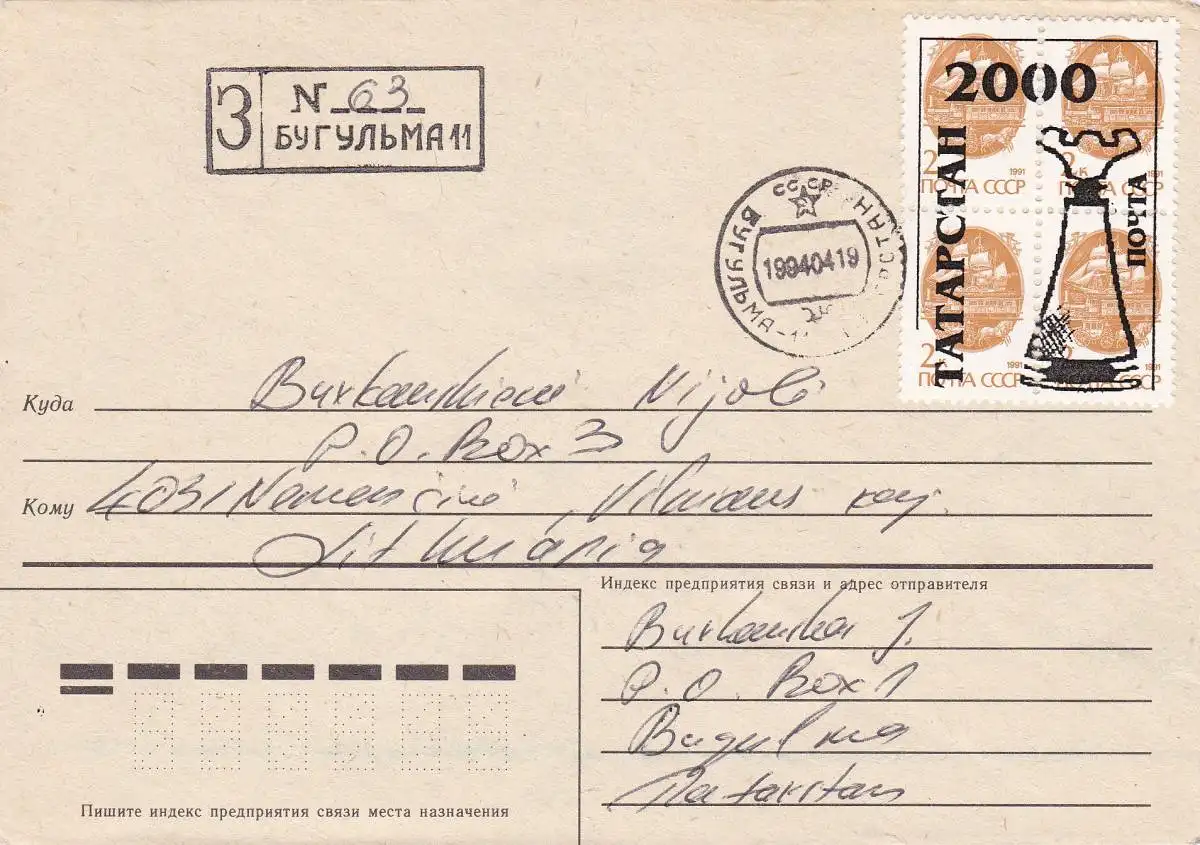 З N 63
БУГУЛЬМА 11
СССР
БУГУЛЬМА-11
19940419
2000
ТАТАРСТАН
ПОЧТА
2к 1991
ПОЧТА СССР
2к 1991
ПОЧТА СССР
2к 1991
ПОЧТА СССР
2 1991
ПОЧТА СССР
Куда
P.O. Box 3
Кому 4031 Nemenčinė, Vilniaus raj.
Lithuania
Индекс предприятия связи и адрес отправителя
J.
P.O. Box 1
Bugulma
Tatarstan
Пишите индекс предприятия связи места назначения